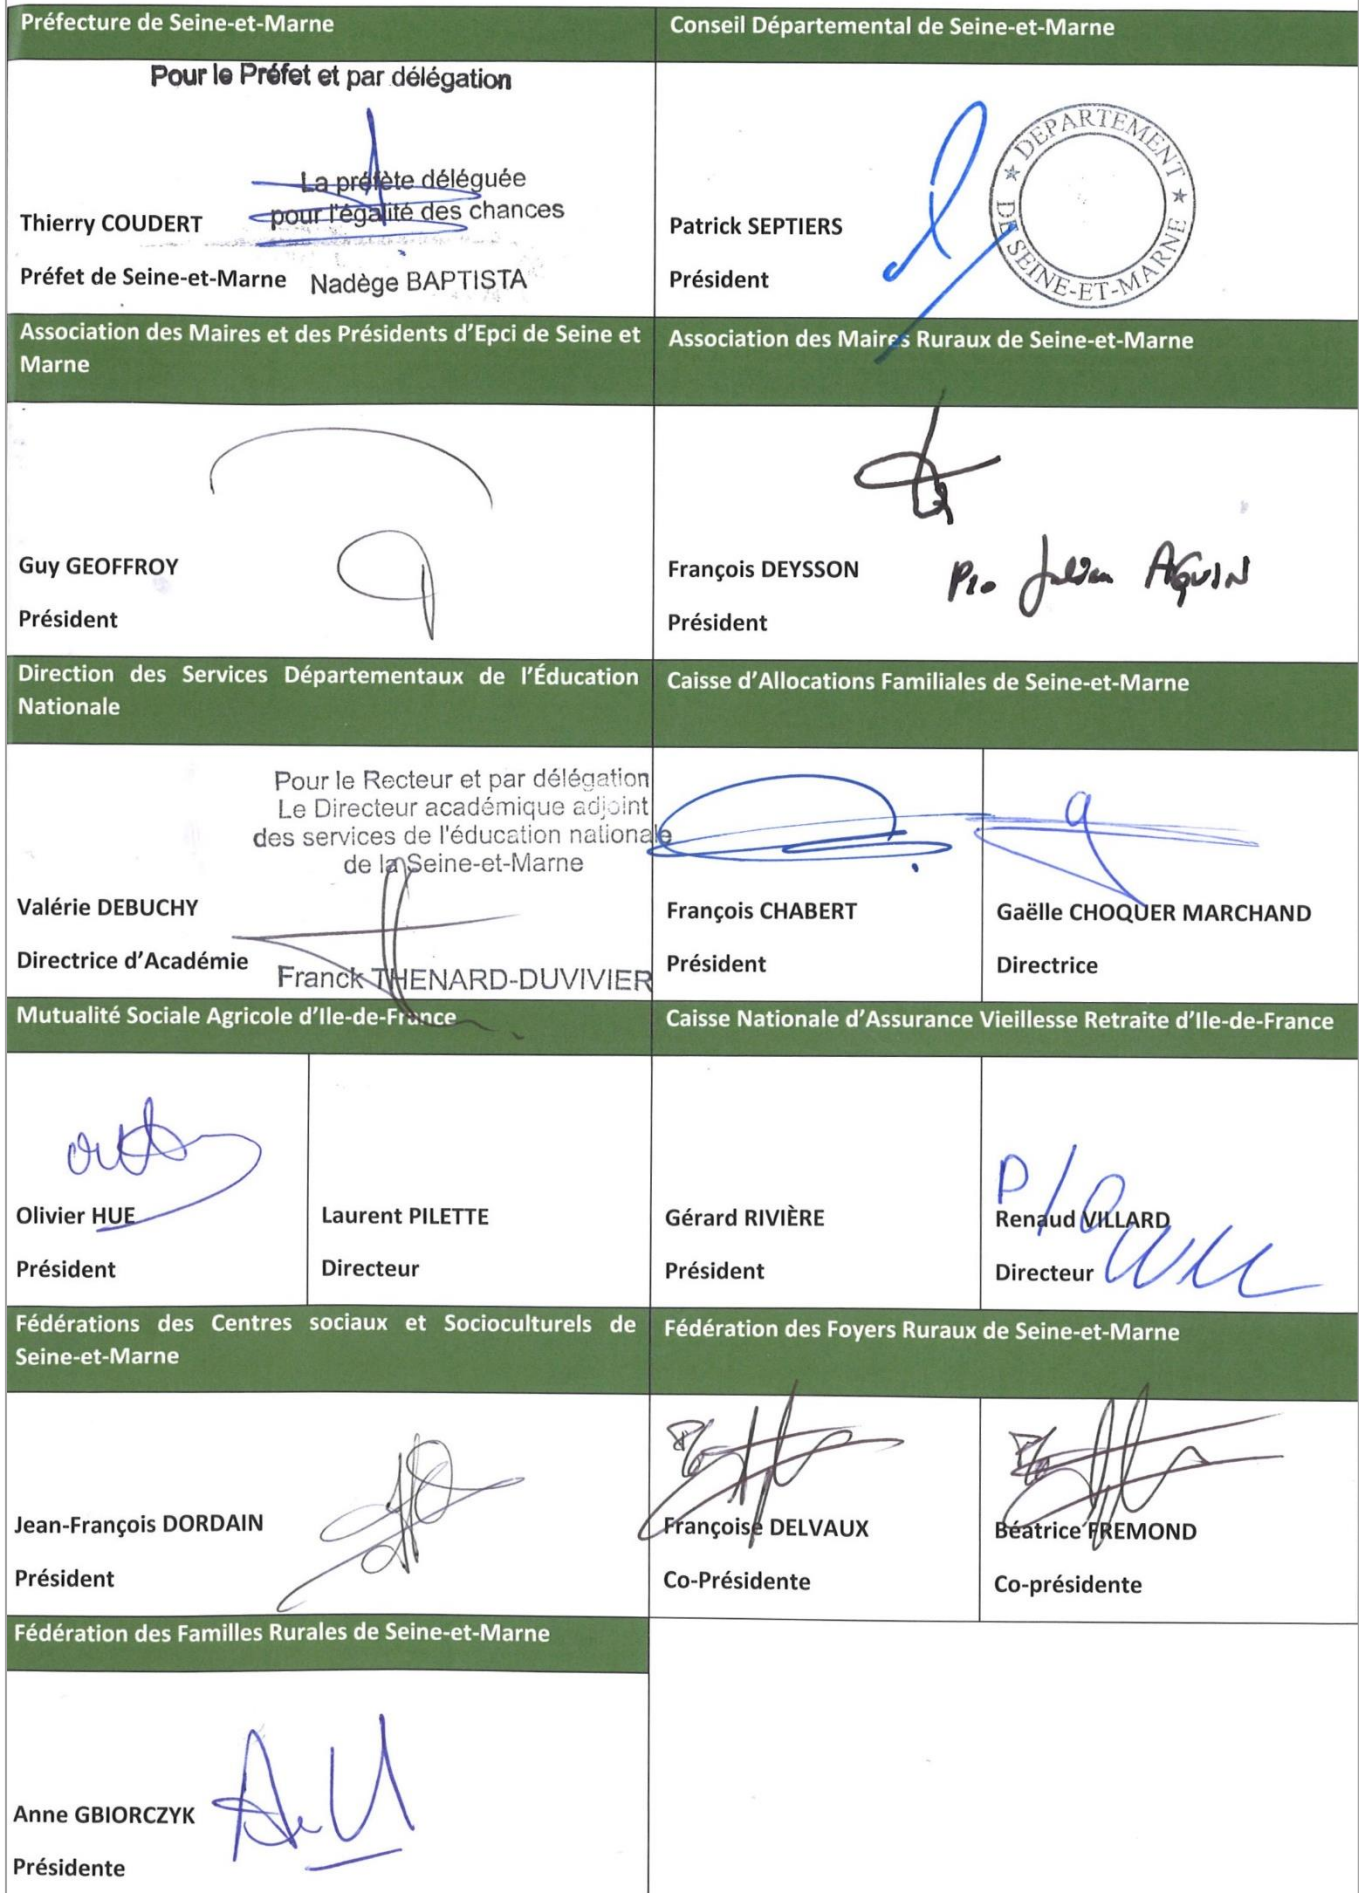 Préfecture de Seine-et-Marne
Pour le Préfet et par délégation
La préfète déléguée
pour l'égalité des chances
Thierry COUDERT
Préfet de Seine-et-Marne
Nadège BAPTISTA
Conseil Départemental de Seine-et-Marne
★ DEPARTEMENT ★
DE SEINE-ET-MARNE
Patrick SEPTIERS
Président
Association des Maires et des Présidents d'Epci de Seine et
Marne
Guy GEOFFROY
Président
Association des Maires Ruraux de Seine-et-Marne
François DEYSSON
P/o Julien AGUIN
Président
Direction des Services Départementaux de l'Éducation
Nationale
Pour le Recteur et par délégation
Le Directeur académique adjoint
des services de l'éducation nationale
de la Seine-et-Marne
Valérie DEBUCHY
Directrice d'Académie
Franck THENARD-DUVIVIER
Caisse d'Allocations Familiales de Seine-et-Marne
François CHABERT
Président
Gaëlle CHOQUER MARCHAND
Directrice
Mutualité Sociale Agricole d'Ile-de-France
Olivier HUE
Président
Laurent PILETTE
Directeur
Caisse Nationale d'Assurance Vieillesse Retraite d'Ile-de-France
Gérard RIVIÈRE
Président
P/o
Renaud VILLARD
Directeur
Fédérations des Centres sociaux et Socioculturels de
Seine-et-Marne
Jean-François DORDAIN
Président
Fédération des Foyers Ruraux de Seine-et-Marne
P/o
Françoise DELVAUX
Co-Présidente
P/o
Béatrice FREMOND
Co-présidente
Fédération des Familles Rurales de Seine-et-Marne
Anne GBIORCZYK
Présidente